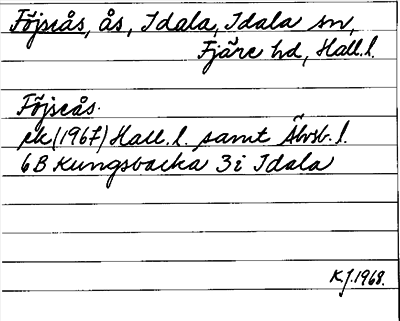 Föjseås, ås, Idala, Idala sn,
Fjäre hd, Hall.l.
Föjseås.
ek (1967) Hall. l. samt Älvsb. l.
6B Kungsbacka 3i Idala
K.J. 1968.